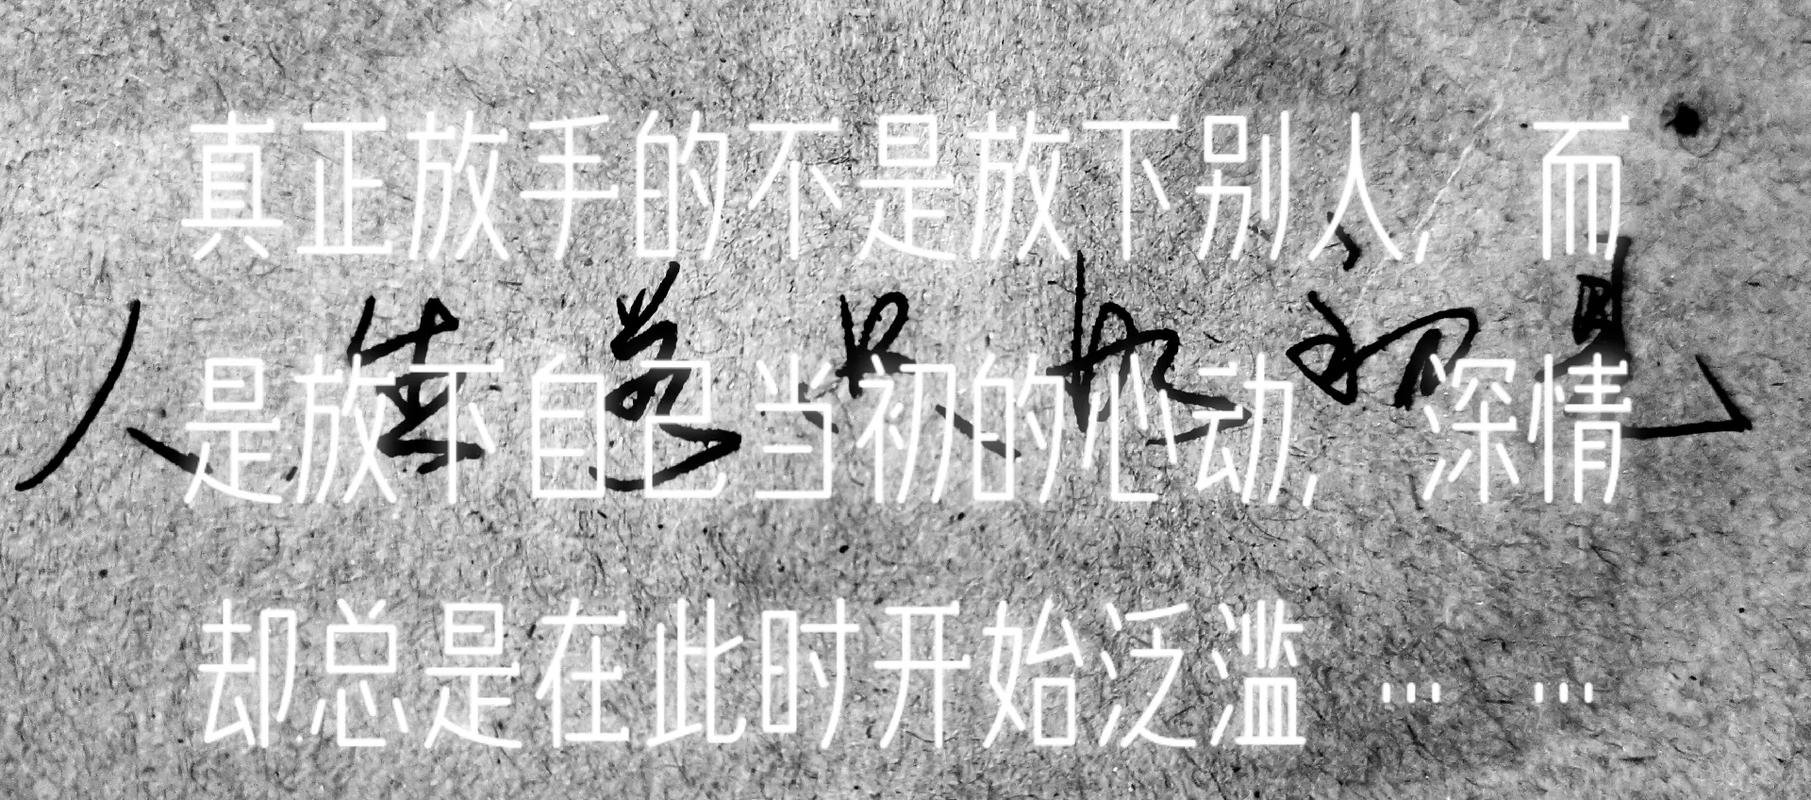 真正放手的不是放下别人,而
人生若只如初见
是放下自己当初的心动,深情
却总是在此时开始泛滥……